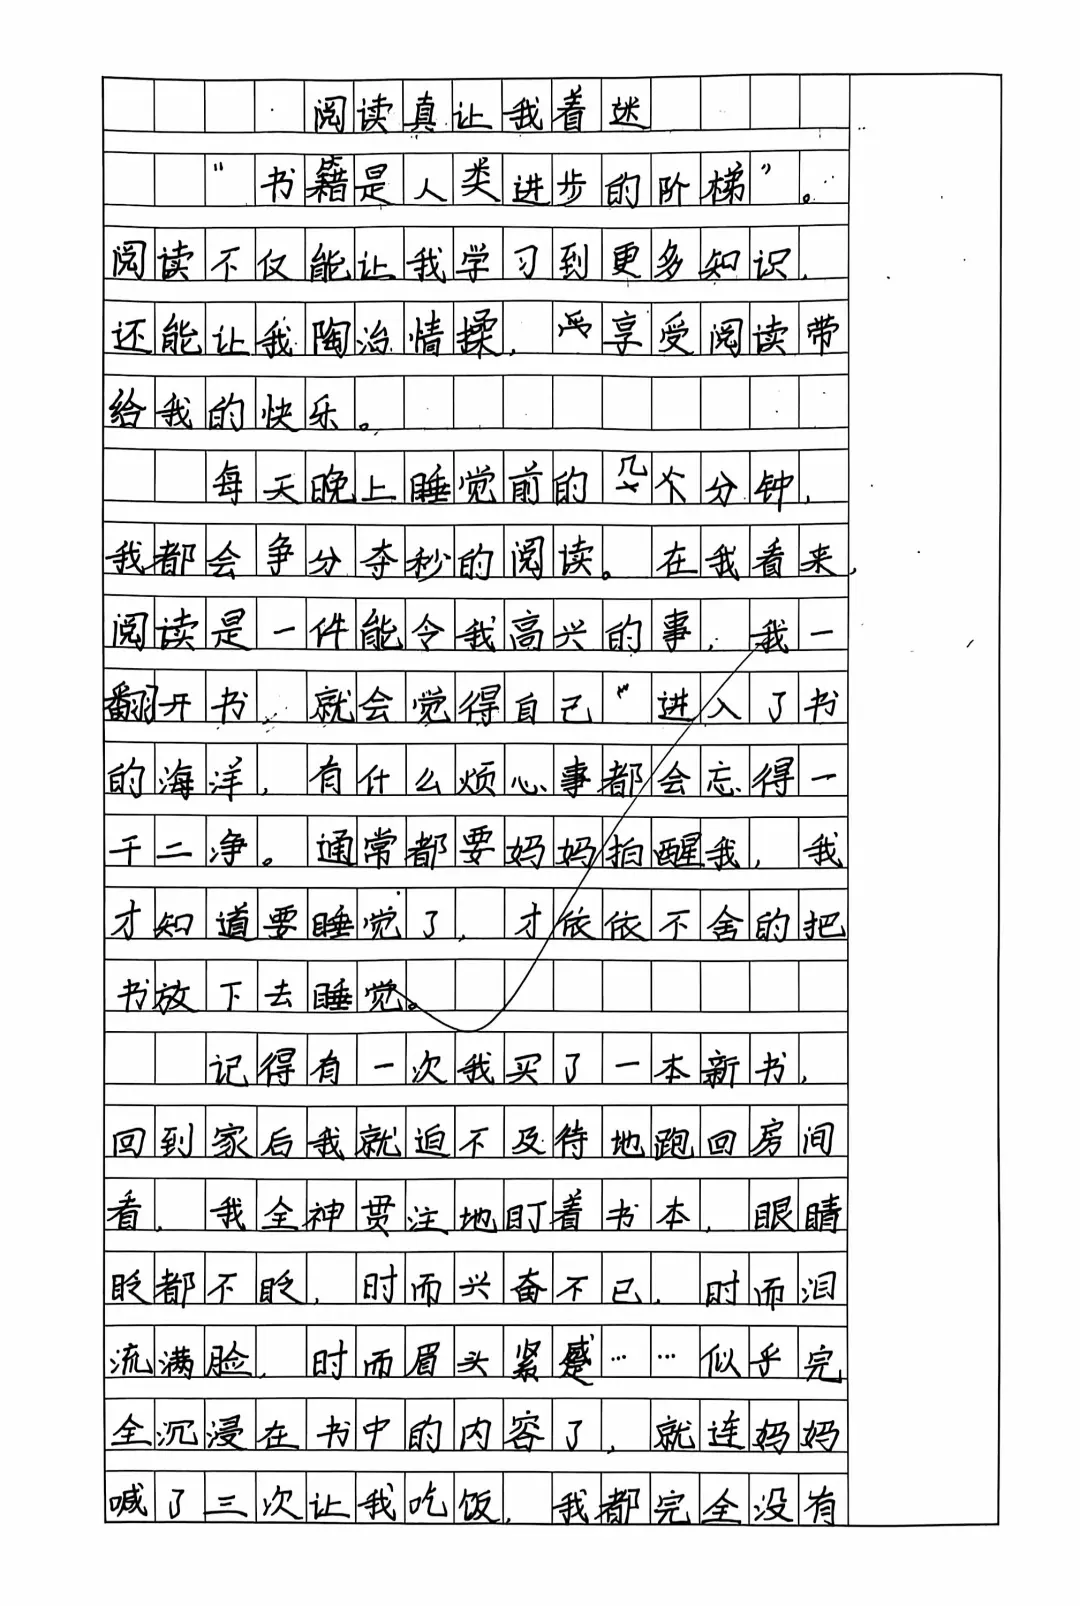 阅读真让我着迷
“书籍是人类进步的阶梯”。
阅读不仅能让我学习到更多知识,
还能让我陶冶情操,享受阅读带
给我的快乐。
每天晚上睡觉前的几个分钟,
我都会争分夺秒的阅读。在我看来,
阅读是一件能令我高兴的事,我一
翻开书,就会觉得自己“进入了书
的海洋,有什么烦心事都会忘得一
干二净。通常都要妈妈拍醒我,我
才知道要睡觉了,才依依不舍的把
书放下去睡觉。
记得有一次我买了一本新书,
回到家后我就迫不及待地跑回房间
看,我全神贯注地盯着书本,眼睛
眨都不眨,时而兴奋不已,时而泪
流满脸,时而眉头紧蹙……似乎完
全沉浸在书中的内容了,就连妈妈
喊了三次让我吃饭,我都完全没有